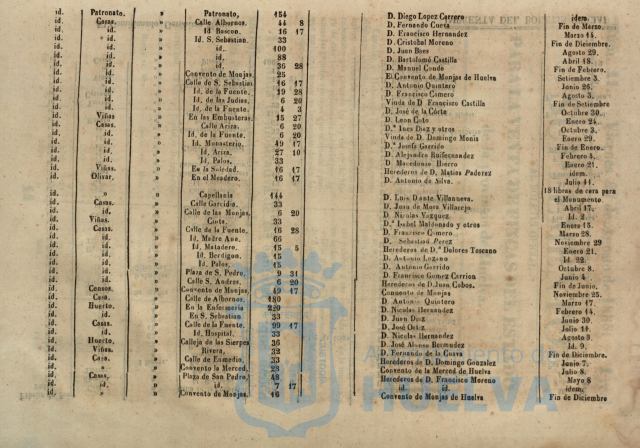 id. Patronato. » Patronato, 154 D. Diego Lopez Carrero idem.
id. Casas. » Calle Albornos. 44 8 D. Fernando Cueta Fin de Marzo.
id. id. » Id Boscon. 16 17 D. Francisco Hernandez Marzo 14.
id. id. » Id. S. Sebastian. 33 D. Cristobal Moreno Fin de Diciembre.
id. id. » id. 100 D. Juan Baes Agosto 29.
id. id. » id. 88 D. Bartolomé Castilla Abril 18.
id. id. » id. 36 28 D. Manuel Conde Fin de Febrero.
id. id. » Convento de Monjas. 25 El Convento de Monjas de Huelva Setiembre 3.
id. id. » Calle de S. Sebastian 16 17 D. Antonio Quintero Junio 26.
id. id. » Id. de la Fuente. 19 28 D. Francisco Camero Agosto 3.
id. id. » Id. de las Judias. 6 20 Viuda de D. Francisco Castilla Fin de Setiembre
id. id. » Id. de la Fuente. 4 3 D. José de la Corte Octubre 30.
id. Viñas » En las Embusteras 15 27 D. Leon Coto Enero 24.
id. Casas. » Calle Ariza. 6 20 D.ª Ines Diaz y otros Octubre 3.
id. id. » Id. de la Fuente. 6 20 Viuda de D. Domingo Monis Enero 29.
id. id. » Id. Monasterio. 49 17 D.ª Josefa Garrido Fin de Enero.
id. id. » Id. Ariza. 27 10 D. Alejandro Ruifernandez Febrero 4.
id. id. » Id. Palos. 33 D. Macedonio Hierro Enero 21.
id. Viñas. » En la Soledad. 16 17 Herederos de D. Matias Paderez idem.
id. Olivar. » En el Meadero. 16 17 D. Antonio de Silva. Julio 11.
18 libras de cera para
id. » » Capellania 144 D. Luis Dante Villanueva. el Monumento
id. Casas. » Calle Garcidio. 33 D. Juan de Mora Villarejo Abril 17.
id. id. » Calle de las Monjas. 6 20 D. Nicolas Vazquez Id. 2.
id. Viñas. » Cinto. 33 D.ª Isabel Maldonado y otros Enero 15.
id. Casas. » Calle de la Fuente. 16 28 D. Francisco Camero Marzo 28.
id. id. » Id. Madre Ana. 66 D. Sebastian Perez Noviembre 29
id. id. » Id. Matadero. 15 5 Herederos de D.ª Dolores Toscano Enero 21.
id. id. » Id. Berdigon. 15 D. Antonio Lozano Id. 22.
id. id. » Id. Palos. 15 D. Antonio Garrido Octubre 8.
id. id. » Plaza de S. Pedro. 9 31 D. Francisco Gomez Carrion Junio 4.
id. id. » Calle S. Andres. 6 20 Herederos de D. Juan Cobos. Fin de Junio.
id. Censos. » Convento de Monjas. 49 17 Convento de Monjas Noviembre 25.
id. Casa. » Calle de Albornos. 180 D. Antonio Quintero Marzo 17.
id. Huerto. » En la Enfermeria 220 D. Nicolas Hernandez Febrero 14.
id. id. » En S. Sebastian 33 D. Juan Diaz Junio 30.
id. Casas. » Calle de la Fuente. 99 17 D. José Ortiz Julio 11.
id. id. » Id. Hospital. 33 D. Nicolas Hernandez Agosto 8.
id. Huerto. » Calleja de las Sierpes 36 D. José Alonso Bermudez Id. 9.
id. Viñas. » Rivera. 32 D. Fernando de la Cueva Fin de Diciembre.
id. Casa. » Calle de Enmedio. 33 Herederos de D. Domingo Gonzalez Junio 7.
id. » » Convento la Merced. 23 Convento de la Merced de Huelva Julio 8.
id. Casas. » Plaza de San Pedro. 48 Herederos de D. Francisco Moreno Mayo 8
id. id. » id. 7 17 id. id. idem.
id. » » Convento de Monjas. 16 Convento de Monjas de Huelva Fin de Diciembre
HUELVA